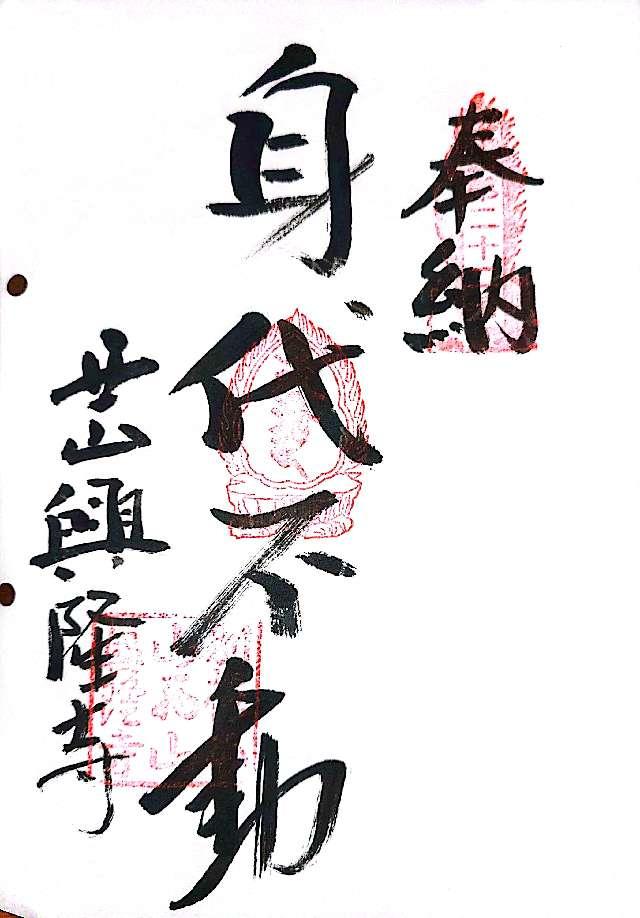 奉納
身代不動
西山興隆寺